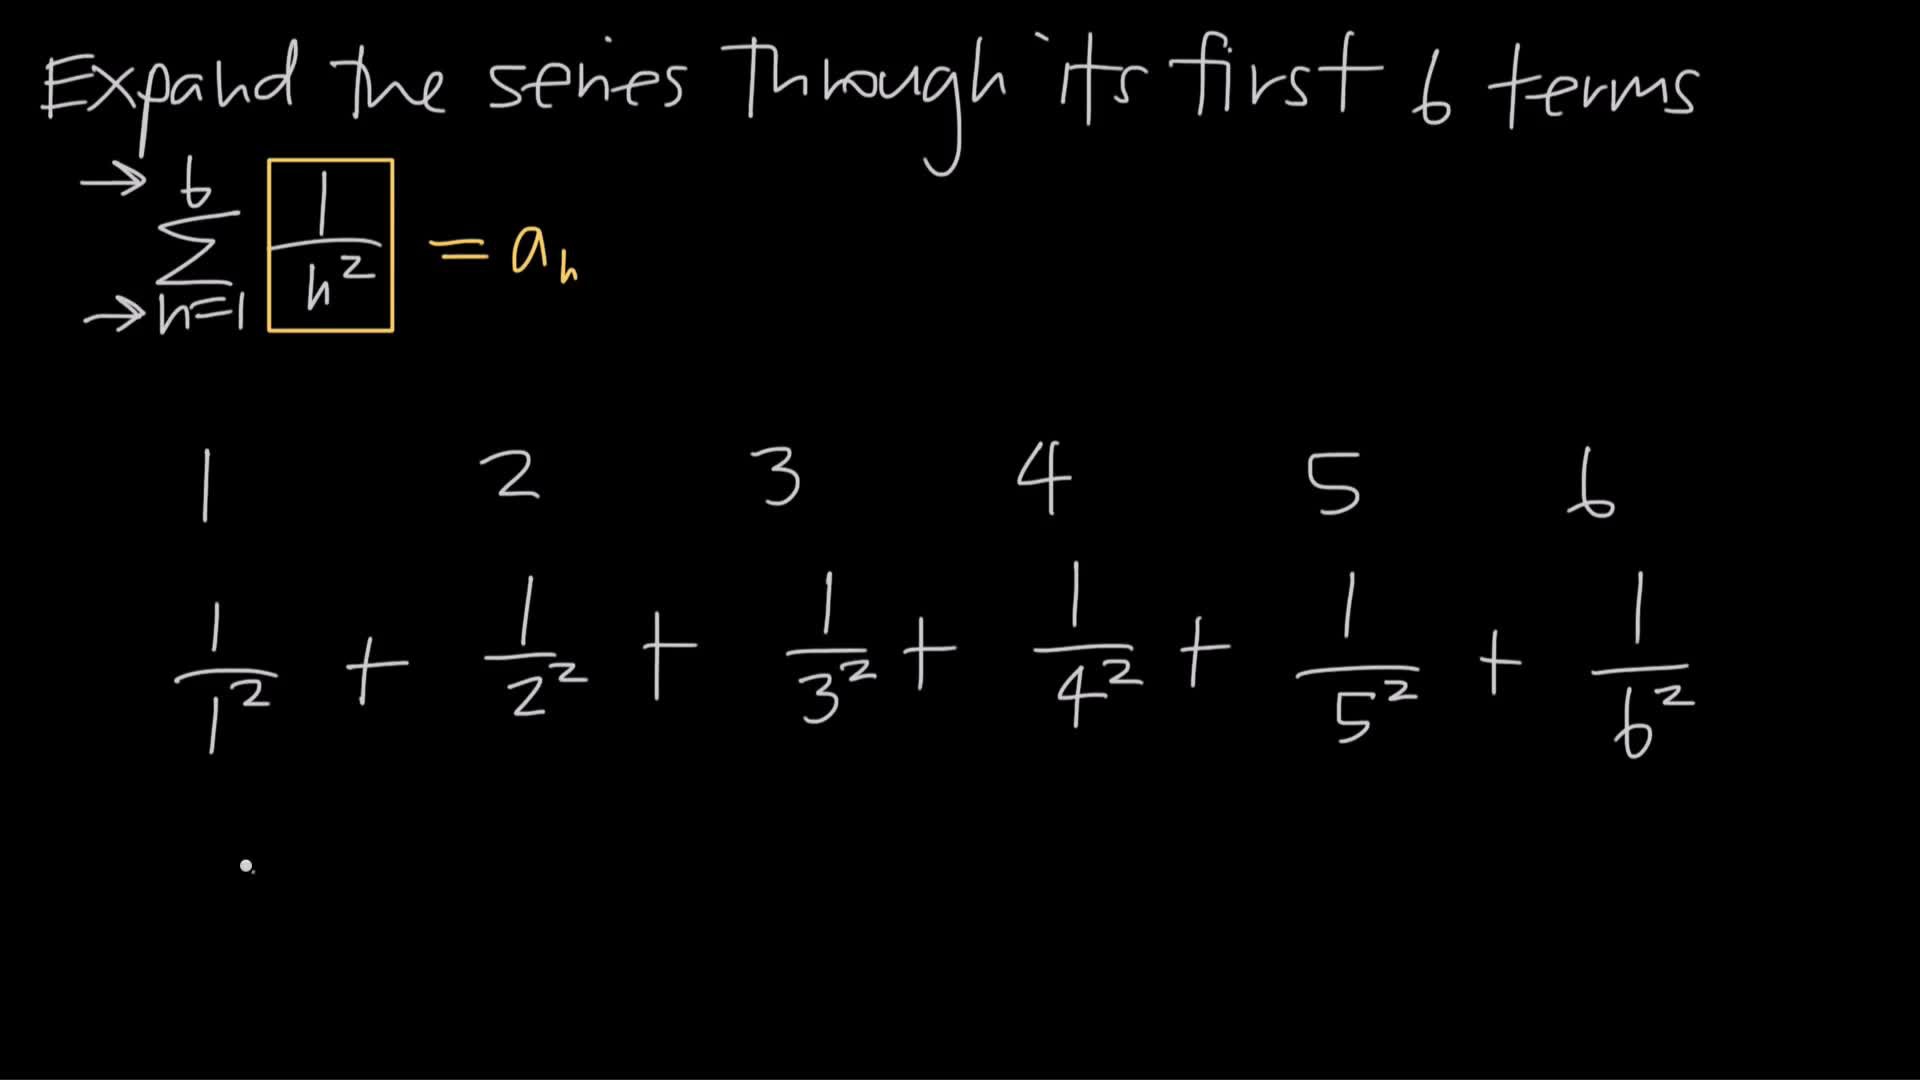 Expand the series through its first 6 terms
→ 6
∑ 1/n² = aₙ
→ n=1
1 2 3 4 5 6
1/1² + 1/2² + 1/3² + 1/4² + 1/5² + 1/6²